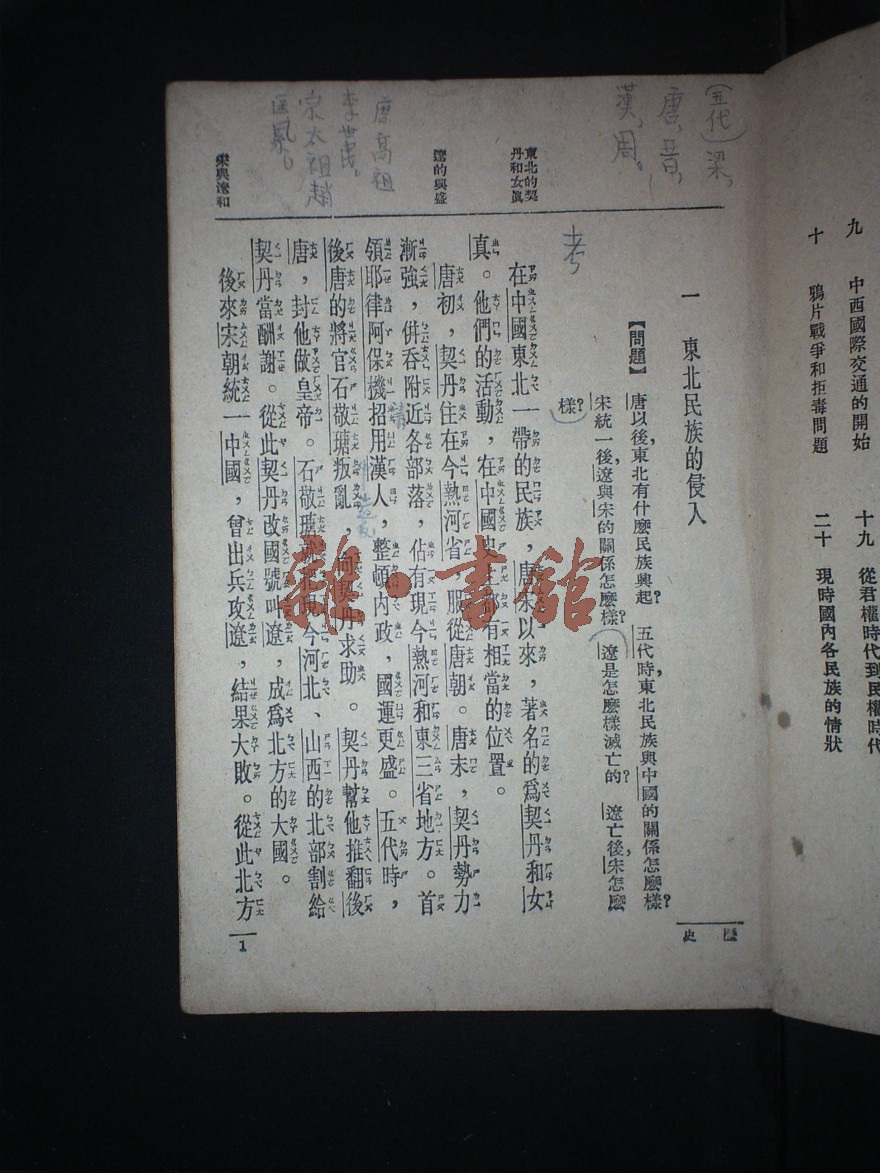 九　中西國際交通的開始
十　鴉片戰爭和拒毒問題
十九　從君權時代到民權時代
二十　現時國內各民族的情狀
歷史
一　東北民族的侵入
【問題】唐以後，東北有什麽民族興起？五代時，東北民族與中國的關係怎麽樣？
宋統一後，遼與宋的關係怎麽樣？遼是怎麽樣滅亡的？遼亡後，宋怎麽
樣？
(五代)梁，
唐，晉，
漢，周。
考
東北的契
丹和女眞
在中國東北一帶的民族，唐宋以來，著名的爲契丹和女
真。他們的活動，在中國史上都有相當的位置。
遼的興盛
唐高祖
李世民。
宗太祖趙
匡
唐初，契丹住在今熱河省，服從唐朝。唐末，契丹勢力
漸強，併吞附近各部落，佔有現今熱河和東三省地方。首
領耶律阿保機招用漢人，整頓內政，國運更盛。五代時，
後唐的將官石敬瑭叛亂，向契丹求助。契丹幫他推翻後
唐，封他做皇帝。石敬瑭就把現今河北、山西的北部割給
契丹當酬謝。從此契丹改國號叫遼，成爲北方的大國。
宋與遼和
後來宋朝統一中國，曾出兵攻遼，結果大敗。從此北方
1
雜·書館